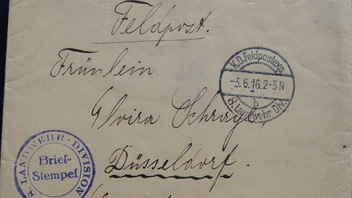 Feldpost.
Fräulein
Elvira
Düsseldorf.
K.D. Feldpostexp.
-3.6.16.2-3N
b
8. Landwehr Div.
8. LANDWEHR-DIVISION
Brief-
Stempel